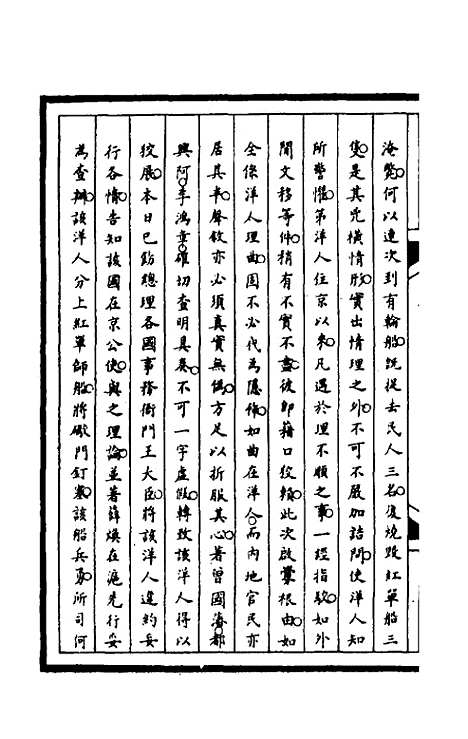 淹斃何以連次到有輪船既捉去民人三名復燒毀紅單船三
隻是其兇橫情形實出情理之外不可不嚴加詰問使洋人知
所警懼第洋人住京以來凡遇於理不順之事一經指駁如外
間文移等件稍有不實不盡彼即藉口狡賴此次啟釁根由如
全係洋人理曲固不必代為隱飾如曲在洋人而內地官民亦
居其半聲敘亦必須真實無偽方足以折服其心著曾國藩都
興阿李鴻章確切查明具奏不可一字虛假轉致該洋人得以
狡展本日已飭總理各國事務衙門王大臣將該洋人違約妄
行各情告知該國在京公使與之理論並著薛煥在滬先行妥
為查辦該洋人分上紅單師船將礮門釘塞該船兵勇所司何